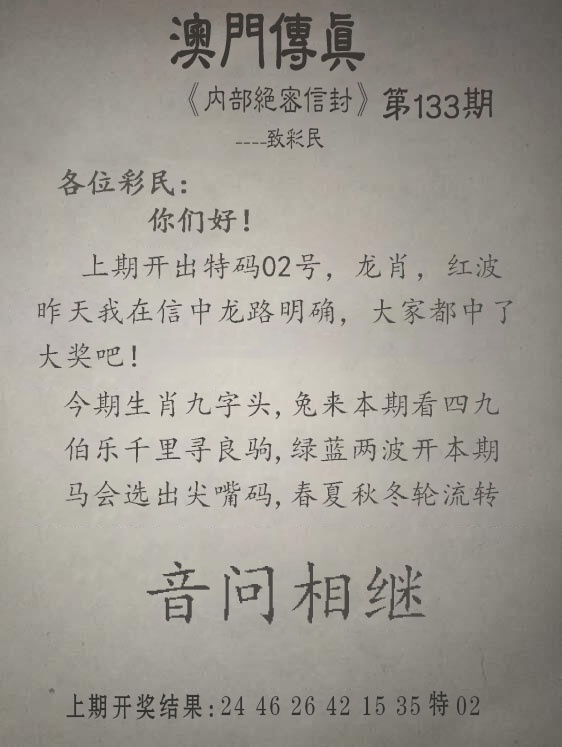 澳門傳眞
《内部絕密信封》第133期
----致彩民
各位彩民：
你们好！
上期开出特码02号，龙肖，红波
昨天我在信中龙路明确，大家都中了
大奖吧！
今期生肖九字头,兔来本期看四九
伯乐千里寻良驹,绿蓝两波开本期
马会选出尖嘴码,春夏秋冬轮流转
音问相继
上期开奖结果:24 46 26 42 15 35 特 02